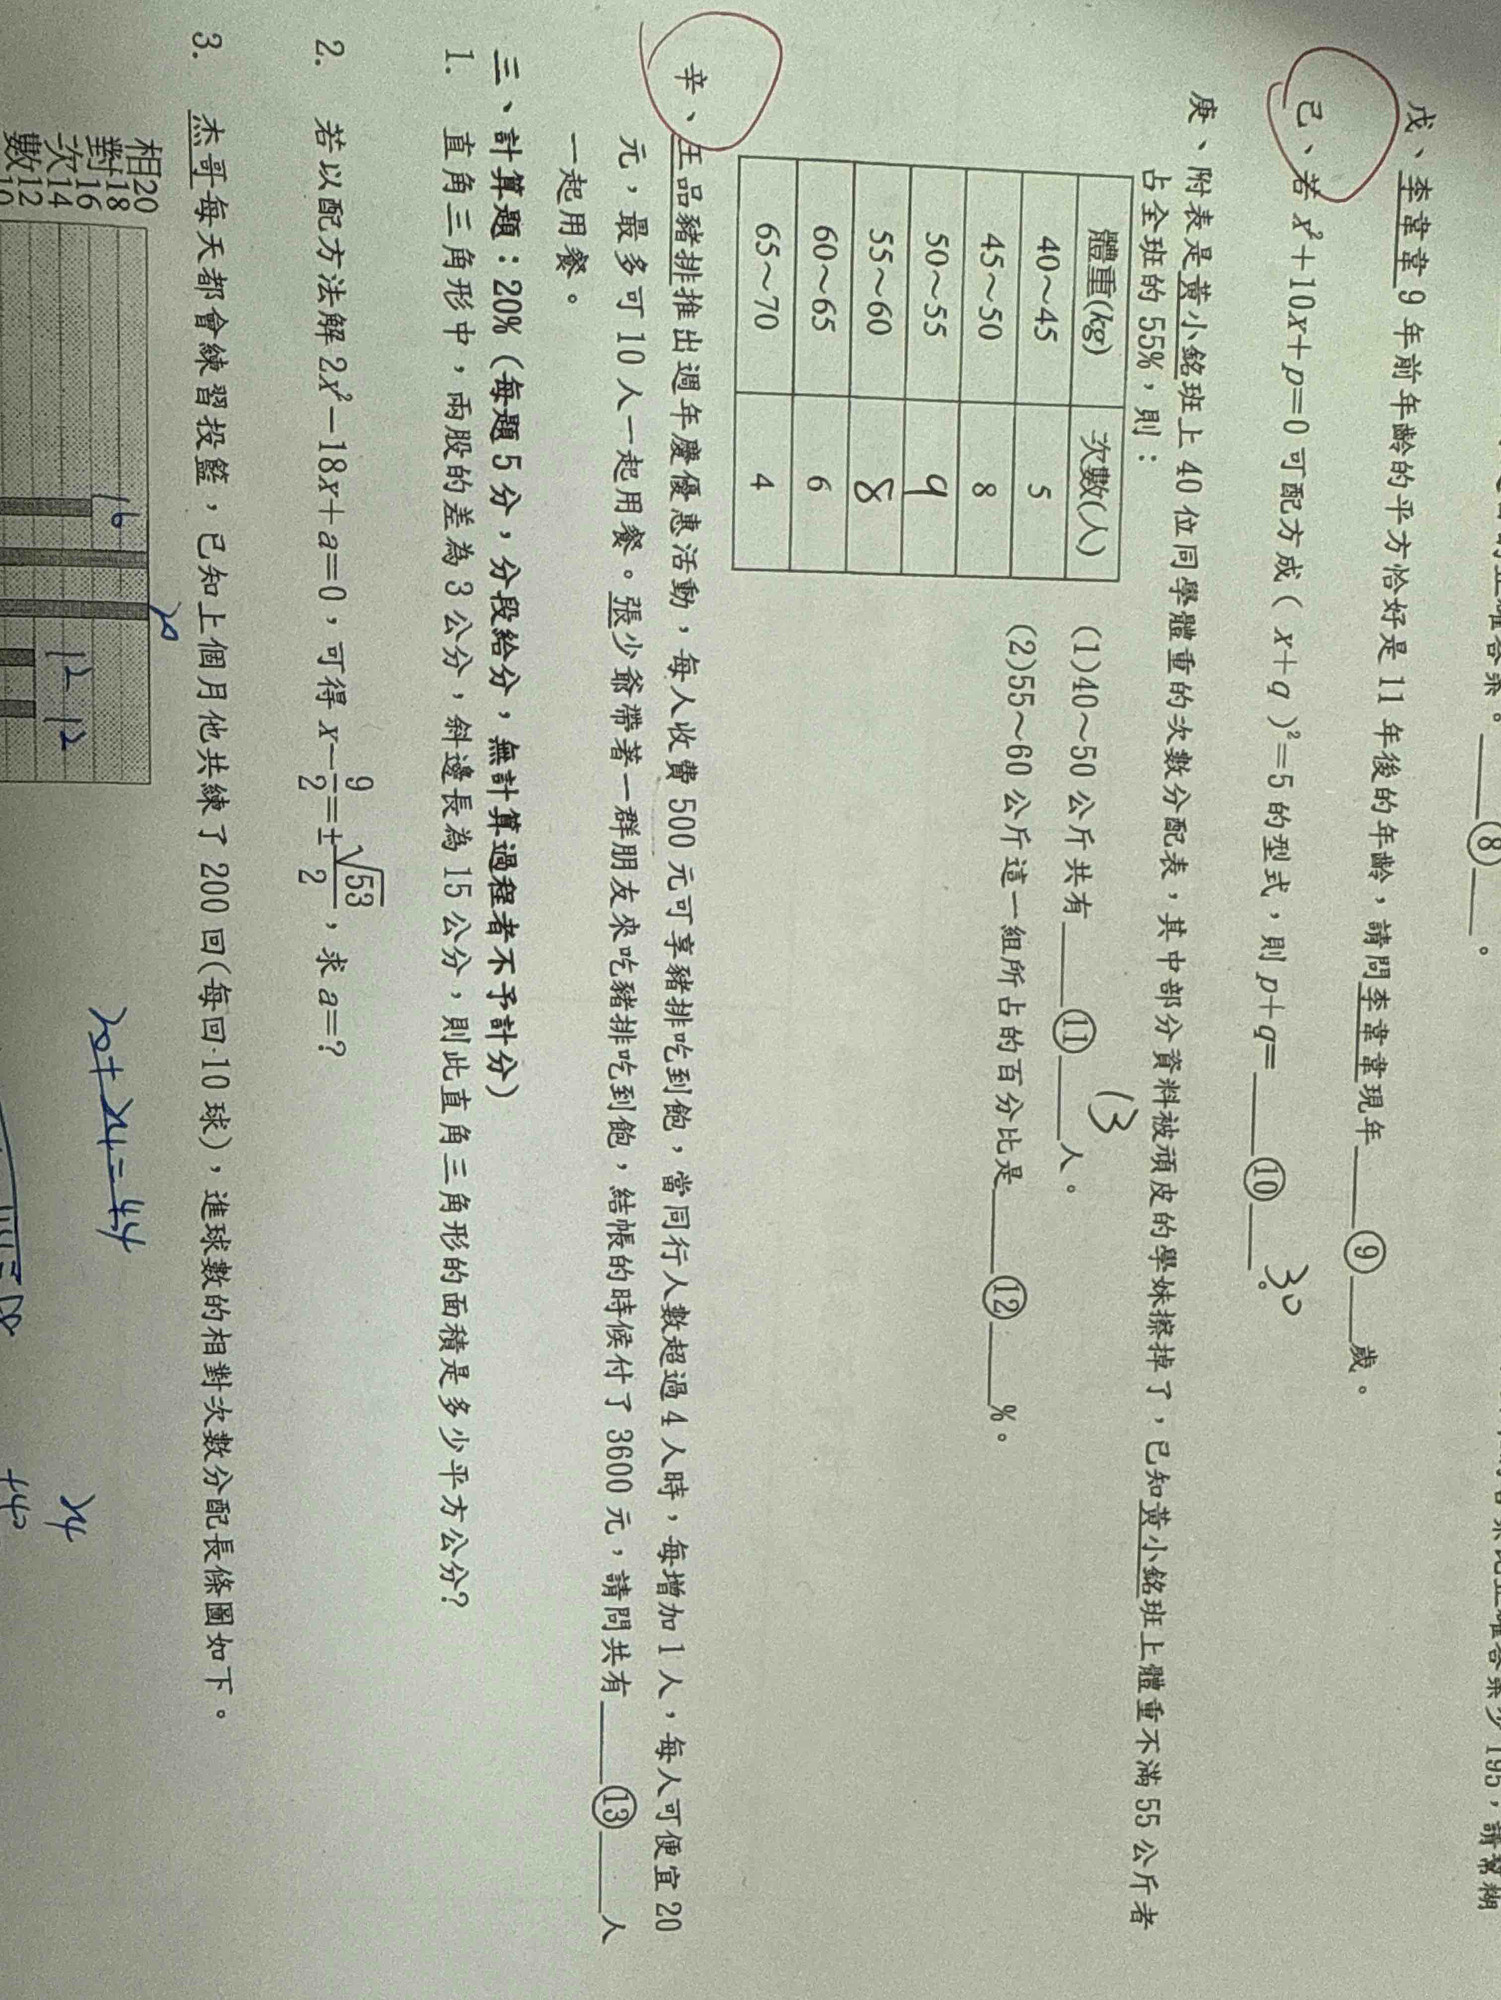 195，請幫糊
⑧。
戊、李韋韋9年前年齡的平方恰好是11年後的年齡，請問李韋韋現年⑨歲。
己、若x²+10x+p=0可配方成(x+q)²=5的型式，則p+q=⑩。
30
庚、附表是黃小銘班上40位同學體重的次數分配表，其中部分資料被頑皮的學妹擦掉了，已知黃小銘班上體重不滿55公斤者
占全班的55%，則：
體重(kg) 次數(人)
40～45 5
45～50 8
50～55 9
55～60 8
60～65 6
65～70 4
(1)40～50公斤共有⑪人。
13
(2)55～60公斤這一組所占的百分比是⑫%。
辛、王品豬排推出週年慶優惠活動，每人收費500元可享豬排吃到飽，當同行人數超過4人時，每增加1人，每人可便宜20
元，最多可10人一起用餐。張少爺帶著一群朋友來吃豬排吃到飽，結帳的時候付了3600元，請問共有⑬人
一起用餐。
三、計算題：20%（每題5分，分段給分，無計算過程者不予計分）
1. 直角三角形中，兩股的差為3公分，斜邊長為15公分，則此直角三角形的面積是多少平方公分?
2. 若以配方法解2x²−18x+a=0，可得x−9/2=±√53/2，求a=?
3. 杰哥每天都會練習投籃，已知上個月他共練了200回(每回10球)，進球數的相對次數分配長條圖如下。
相20
對18
16
次14
數12
10
16
20
12
12
20+24=44
24